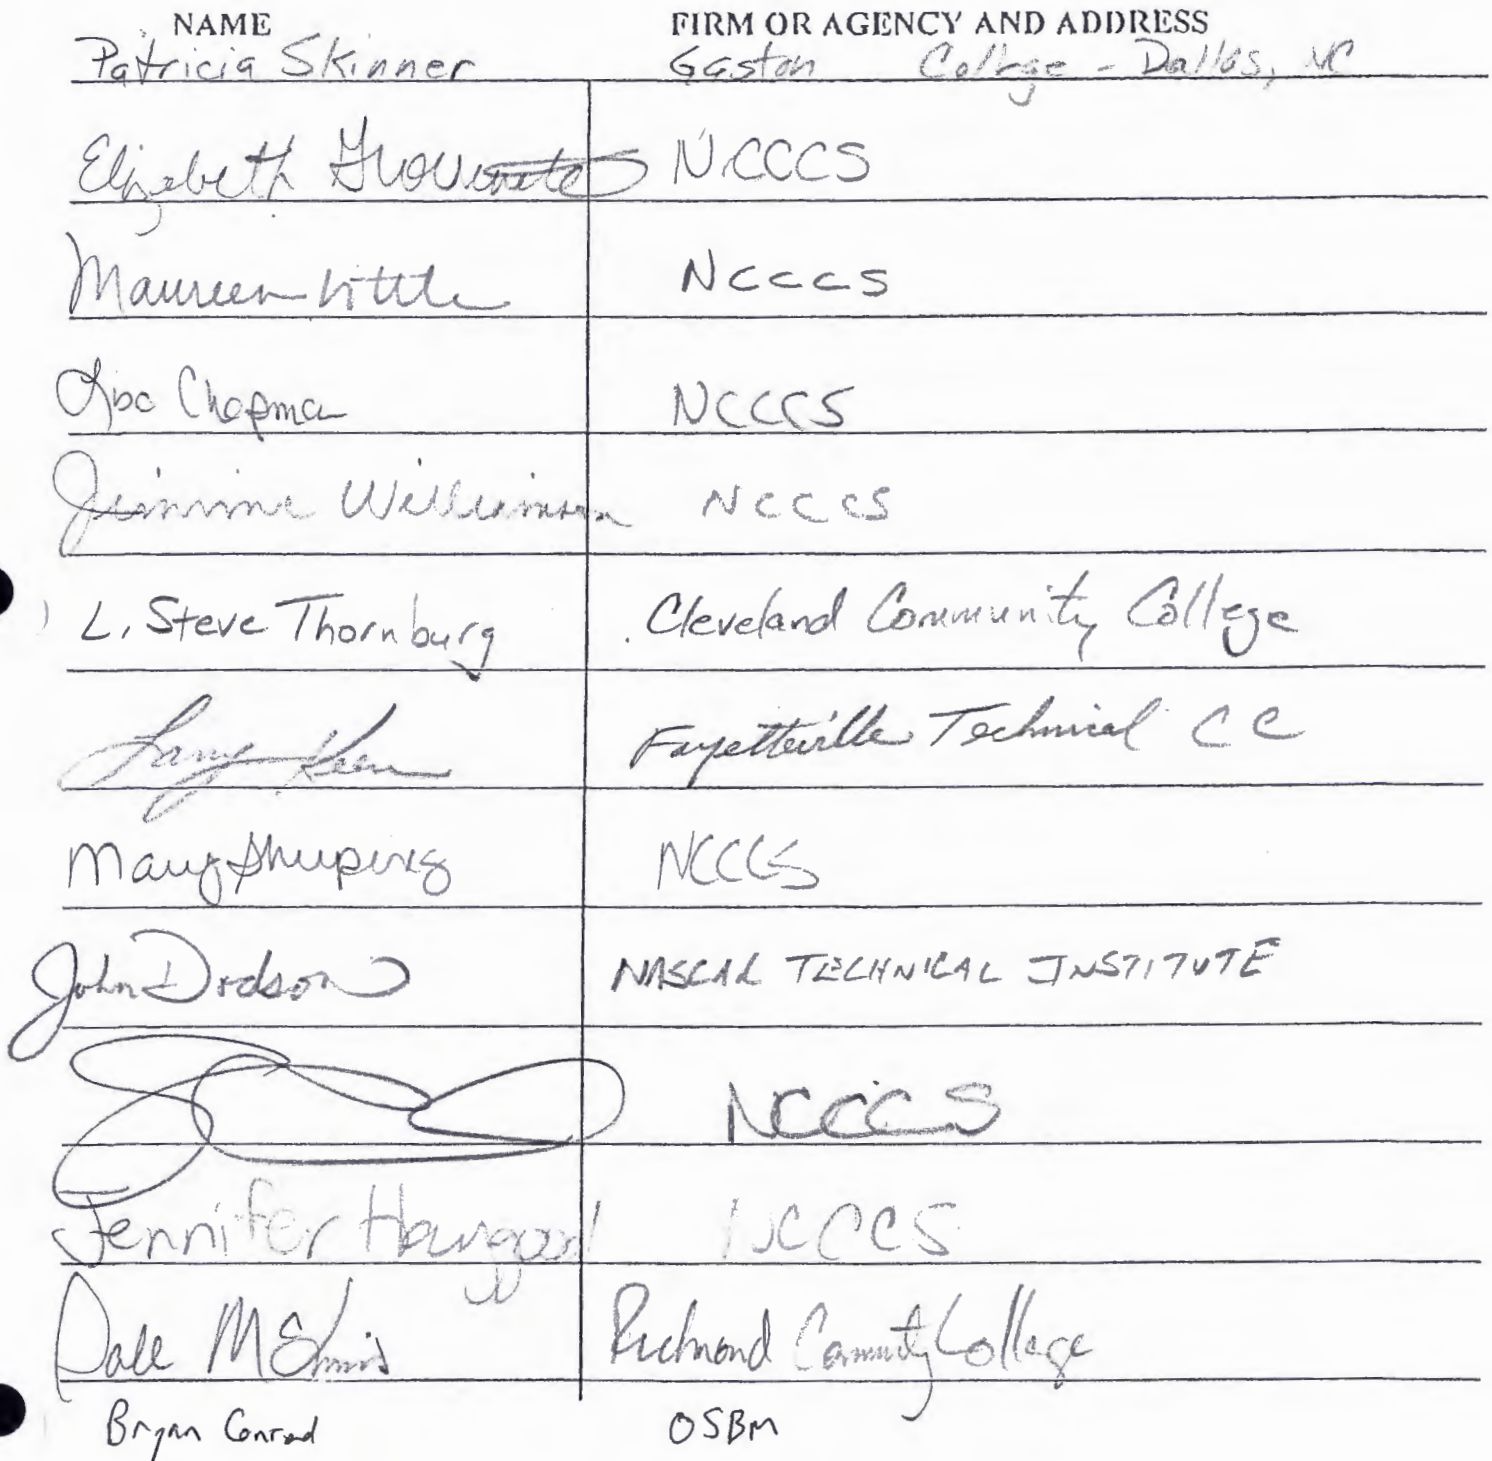 NAME FIRM OR AGENCY AND ADDRESS
Patricia Skinner Gaston College - Dallas, NC
Elizabeth NCCCS
Maureen Little NCCCS
Lisa Chapman NCCCS
Jimmie Williamson NCCCS
L. Steve Thornburg Cleveland Community College
Larry Keen Fayetteville Technical CC
Mary Shuping NCCCS
John Dodson NASCAR TECHNICAL INSTITUTE
NCCCS
Jennifer Haygood NCCCS
Dale McInnis Richmond Community College
Bryan Conrad OSBM